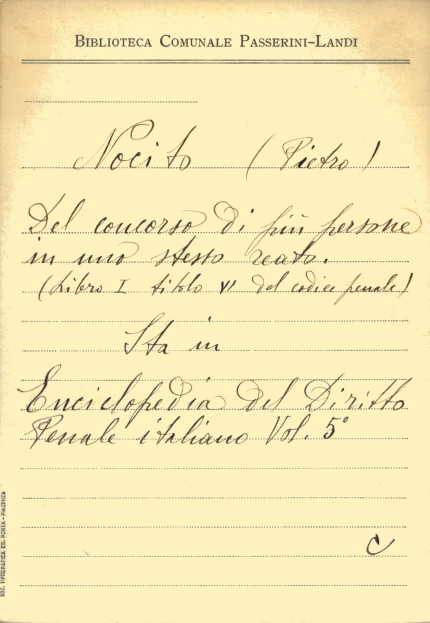 BIBLIOTECA COMUNALE PASSERINI-LANDI
Nocito (Pietro)
Del concorso di più persone
in uno stesso reato.
(Libro I titolo VI del codice penale)
Sta in
Enciclopedia del Diritto
Penale italiano Vol. 5°
C
SOC. TIPOGRAFICA ED. PORTA - PIACENZA